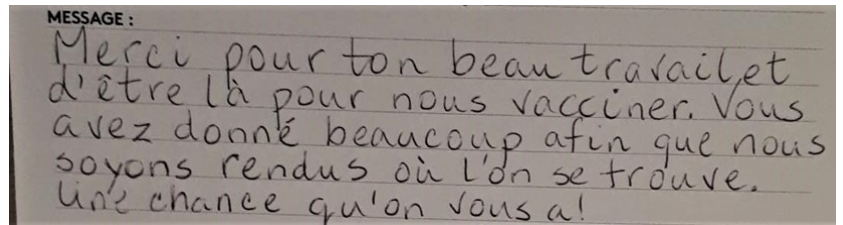 MESSAGE :
Merci pour ton beau travail et
d'être là pour nous vacciner. Vous
avez donné beaucoup afin que nous
soyons rendus où l'on se trouve.
Une chance qu'on vous a!